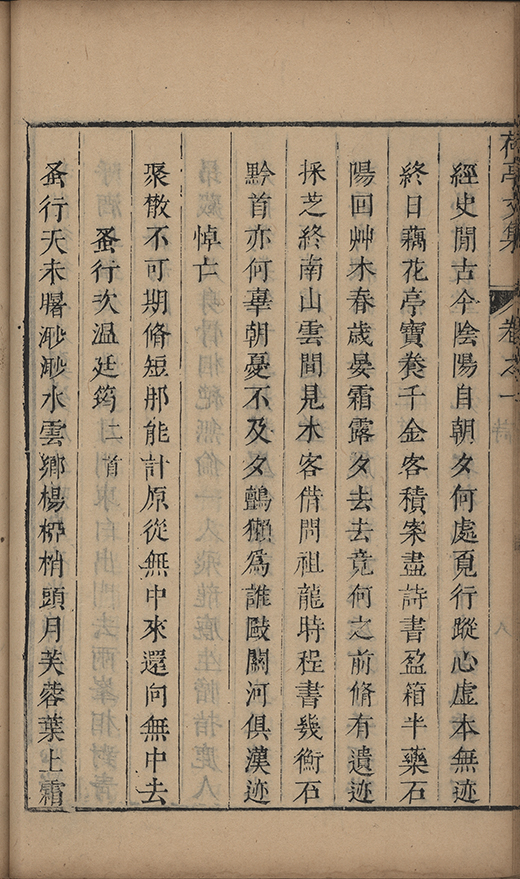 荷亭文集 卷之一 詩 八
經史閒古今陰陽自朝夕何處覓行蹤心虛本無迹
終日藕花亭寶養千金客積案盡詩書盈箱半藥石
陽回艸木春歲晏霜露夕去去竟何之前脩有遺迹
採芝終南山雲間見木客借問祖龍時程書幾衡石
黔首亦何辜朝憂不及夕鸇獺為誰敺關河俱漢迹
悼亡
聚散不可期脩短那能計原從無中來還向無中去
蚤行次溫廷筠二首
蚤行天未曙渺渺水雲鄉楊柳梢頭月芙蓉葉上霜